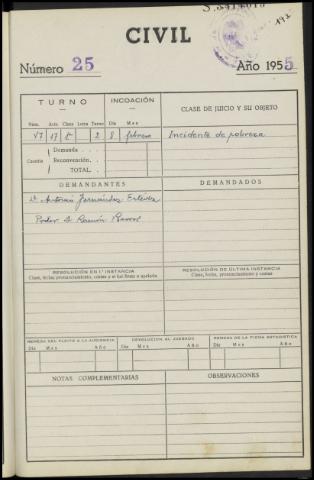 CIVIL
Número 25 Año 1955
TURNO INCOACIÓN CLASE DE JUICIO Y SU OBJETO
Núm. Acta Clase Letra Turno Día Mes
2 8 febrero Incidente de pobreza
Cuantía
Demanda . . .
Reconvención. .
TOTAL. . .
DEMANDANTES DEMANDADOS
Dª Antonia Fernández Estévez
RESOLUCIÓN EN 1ª INSTANCIA RESOLUCIÓN DE ÚLTIMA INSTANCIA
Clase, fecha, pronunciamiento, costas y si fué firme o apelada Clase, fecha, pronunciamiento y costas
REMESA DEL PLEITO A LA AUDIENCIA DEVOLUCIÓN AL JUZGADO REMESA DE LA FICHA ESTADÍSTICA
Día Mes Año Día Mes Año Día Mes Año
NOTAS COMPLEMENTARIAS OBSERVACIONES